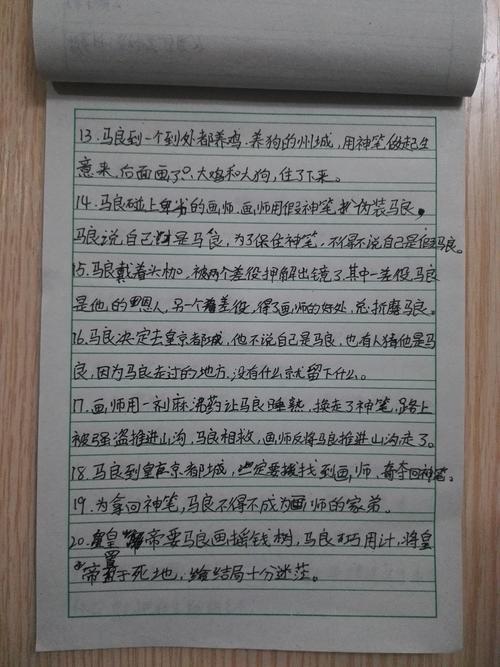 13.马良到一个到处都养鸡.养狗的州城，用神笔做起生
意来，后面画了只大鸡和大狗，住了下来。
14.马良碰上卑劣的画师.画师用假神笔扮伪装马良，
马良说自己才是马良，为了保住神笔，不得不说自己是假马良。
15.马良戴着头枷，被两个差役押解出镜了.其中一差役马良
是他的恩人，另一个差役，得了画师的好处，总折磨马良。
16.马良决定去皇京都城，他不说自己是马良，也有人猜他是马
良，因为马良走过的地方，没有什么就留下什么。
17.画师用一剂麻沸药让马良睡熟，换走了神笔，路上
被强盗推进山沟，马良相救，画师反将马良推进山沟走了。
18.马良到皇京都城，一定要找到画师.夺回神笔。
19.为拿回神笔，马良不得不成为画师的家弟。
20.皇帝要马良画摇钱树，马良巧用计，将皇
帝置于死地，结局十分迷茫。